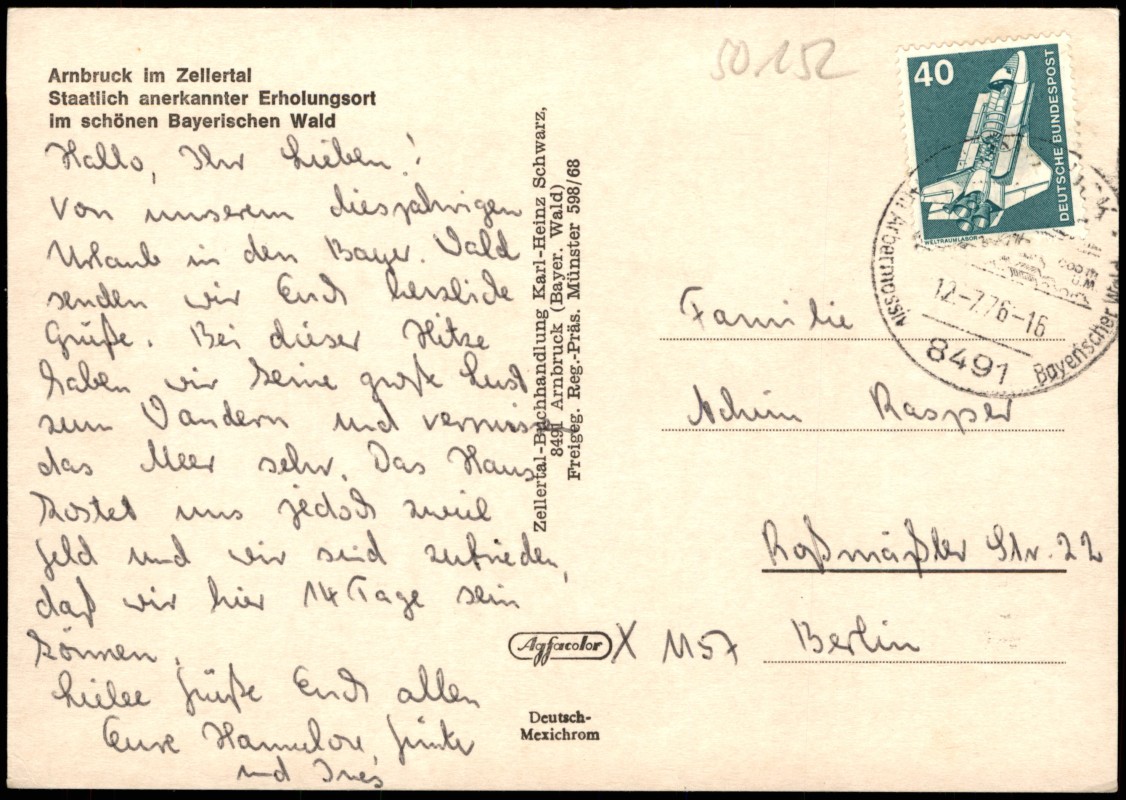 Arnbruck im Zellertal
Staatlich anerkannter Erholungsort
im schönen Bayerischen Wald
Hallo, Ihr Lieben!
Von unserem diesjährigen
Urlaub in den Bayer. Wald
senden wir Euch herzliche
Grüße. Bei dieser Hitze
haben wir keine große Lust
zum Wandern und vermissen
das Meer sehr. Das Haus
kostet uns jedoch zuviel
Geld und wir sind zufrieden,
daß wir hier 14 Tage sein
können.
Liebe Grüße Euch allen
Eure Hannelore, Günter
und Ines
Zellertal-Buchhandlung Karl-Heinz Schwarz,
8491 Arnbruck (Bayer. Wald)
Freigeg. Reg.-Präs. Münster 598/68
Agfacolor
Deutsch-
Mexichrom
50152
40
DEUTSCHE BUNDESPOST
WELTRAUMLABOR
12.-7.76-16
8491
Bayerischer
Familie
Achim Rasper
Roßmäßler Str. 22
X 1157 Berlin